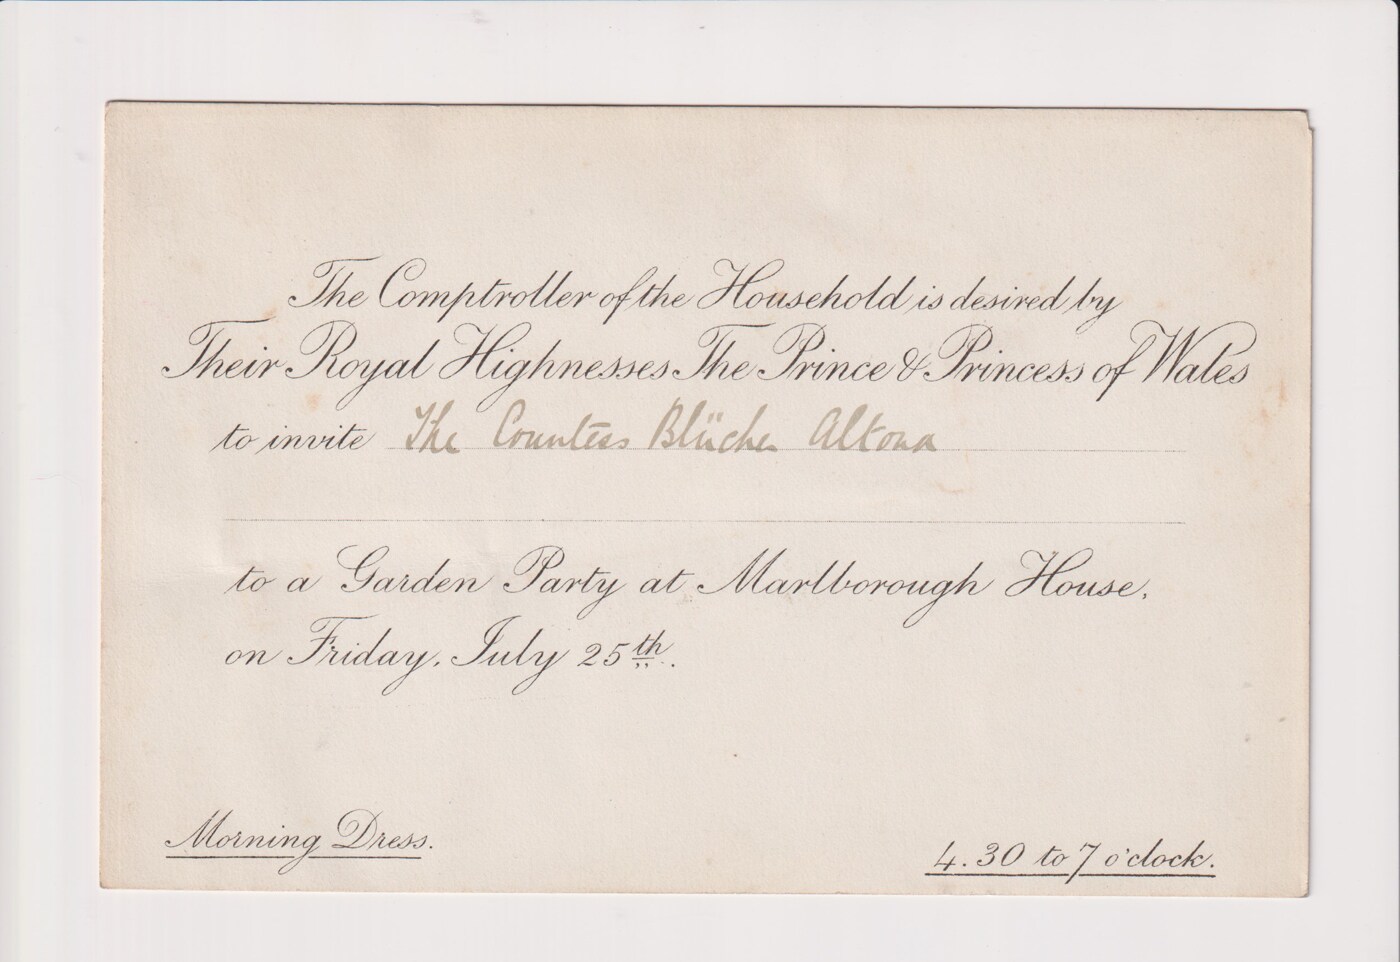 The Comptroller of the Household is desired by
Their Royal Highnesses The Prince & Princess of Wales
to invite The Countess Blücher Altona
to a Garden Party at Marlborough House,
on Friday, July 25th.
Morning Dress.
4.30 to 7 o'clock.